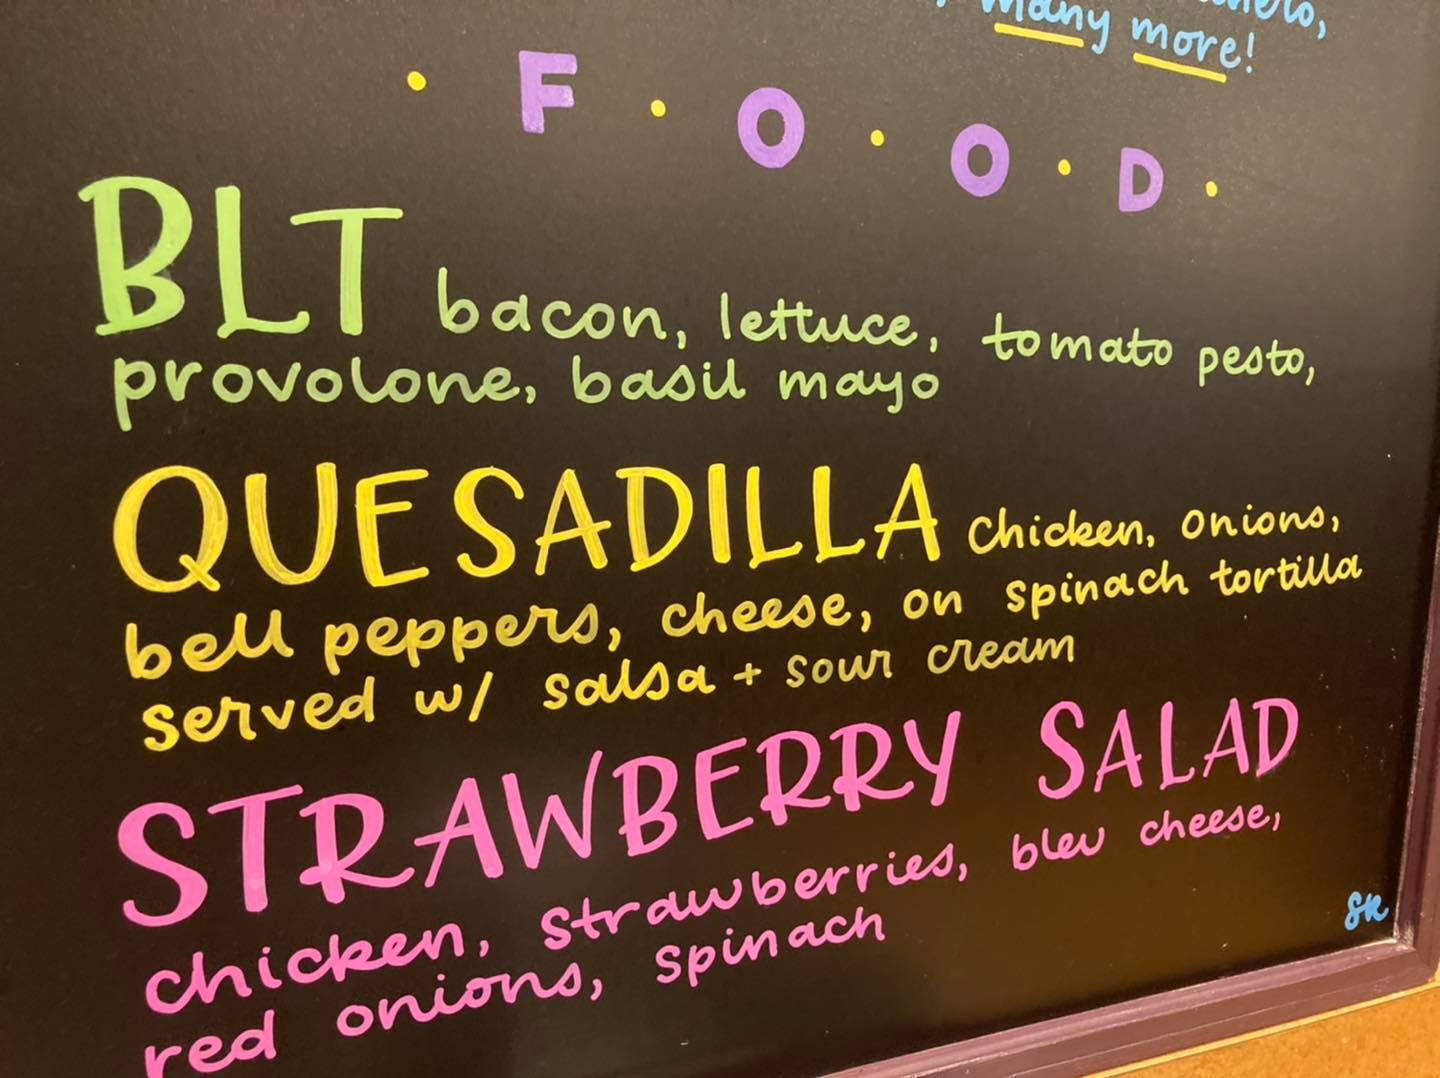 many more!
· F · O · O · D ·
BLT bacon, lettuce, tomato pesto,
provolone, basil mayo
QUESADILLA chicken, onions,
bell peppers, cheese, on spinach tortilla
served w/ salsa + sour cream
STRAWBERRY SALAD
chicken, strawberries, bleu cheese,
red onions, spinach
SK